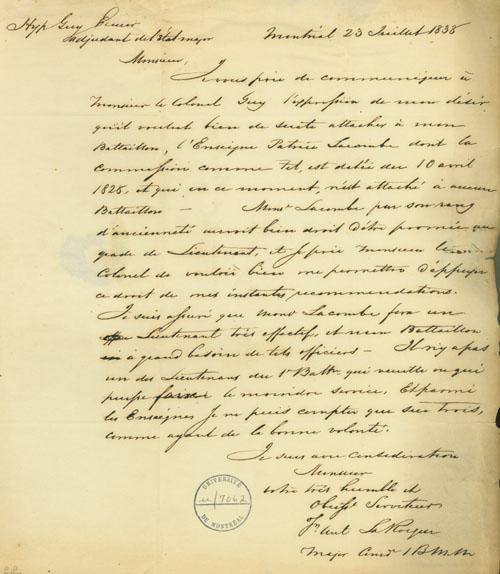 Hyp Guy Ecuier Montréal 23 Juillet 1838
adjudant de l'état major
Monsieur,
Je vous prie de communiquer à
Monsieur le Colonel Guy l'expression de mon désir
qu'il voulut bien de suite attacher à mon
Battaillon, l'Enseigne Patrice Lacombe dont la
commission comme tel, est datée du 10 avril
1828, et qui en ce moment, n'est attaché à aucun
Battaillon — Monsr Lacombe par son rang
d'ancienneté auroit bien droit d'être promu au
grade de Lieutenant, et je prie Monsieur le
Colonel de vouloir bien me permettre d'appuyer
ce droit de mes instantes recommendations.
Je suis assuré que Monsr Lacombe fera un
Lieutenant très effectif, et mon Battaillon
a grand besoin de tels officiers — Il n'y a pas
un des Lieutenans du 1r Battn qui veuille ou qui
puisse faire le moindre service, Et parmi
les Enseignes je ne puis compter que sur trois,
comme ayant de la bonne volonté.
Je suis avec considération
Monsieur
votre très humble et
Obeisst Serviteur
Fs Ant LaRocque
Major Comdt 1 B M M
UNIVERSITÉ
u/7062
DE MONTRÉAL